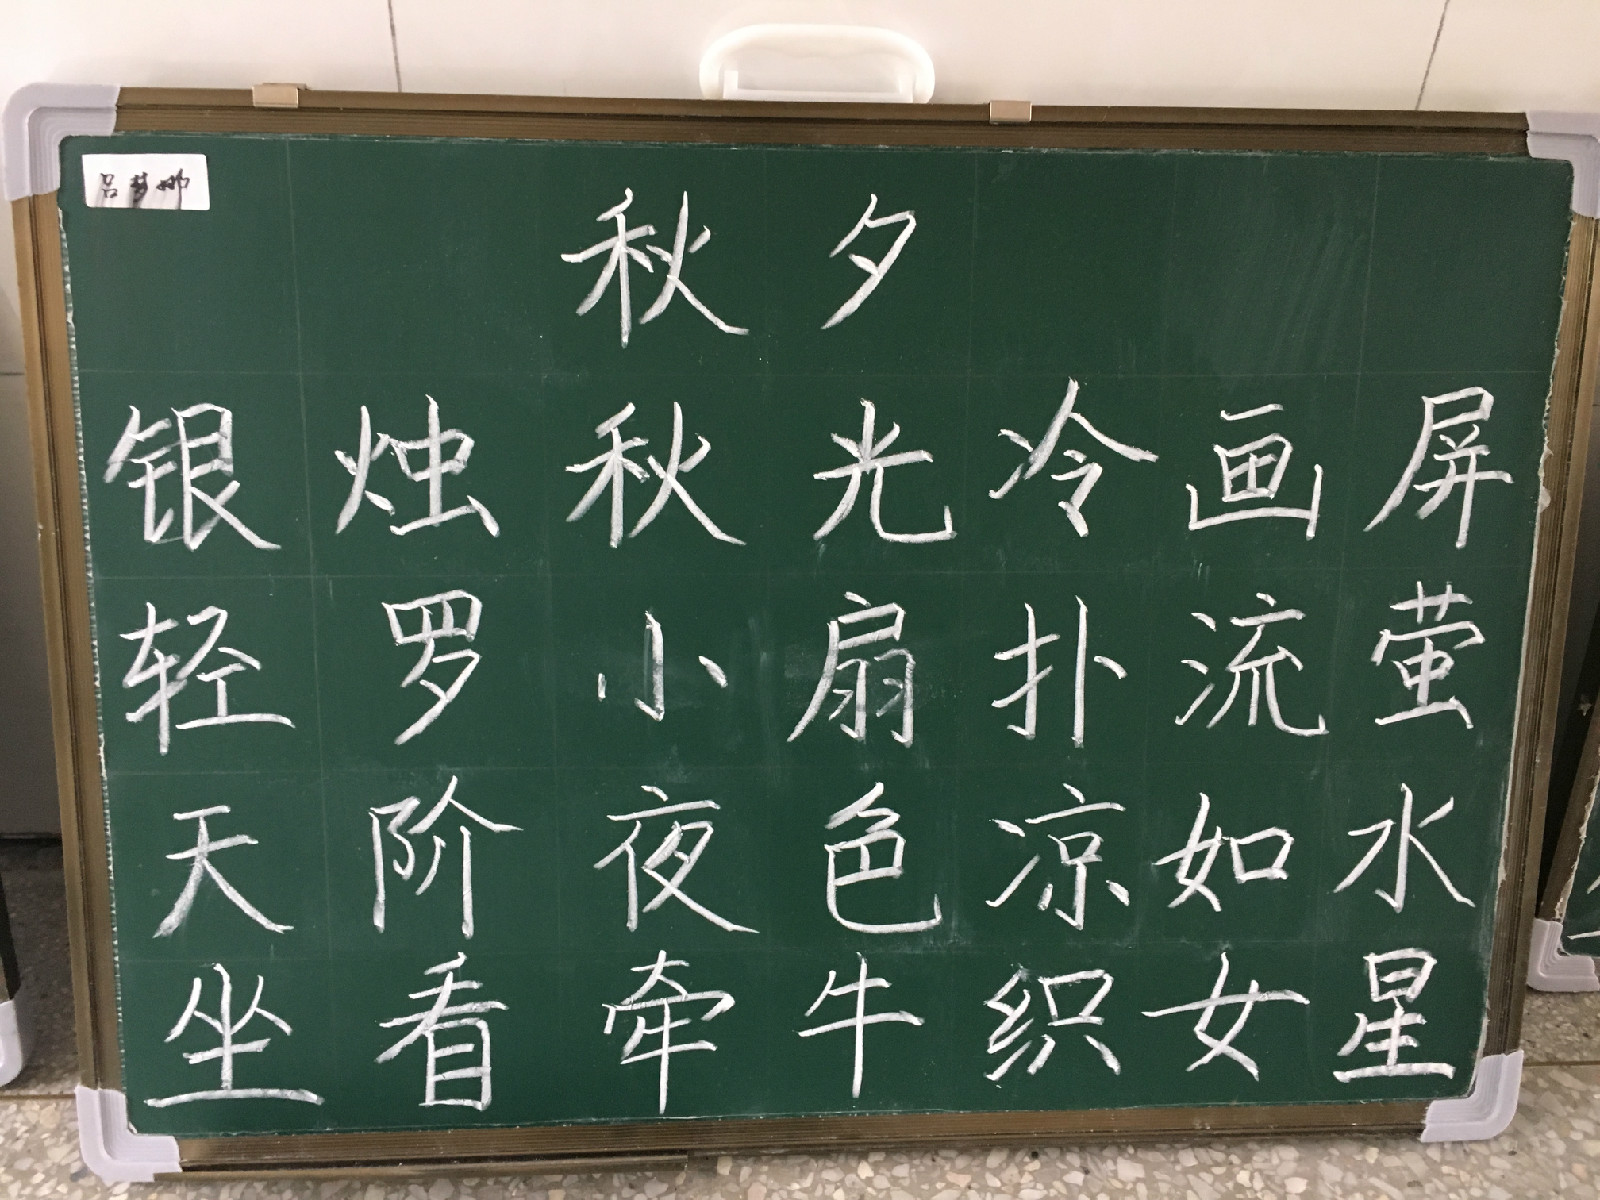 吕梦娜
秋夕
银烛秋光冷画屏
轻罗小扇扑流萤
天阶夜色凉如水
坐看牵牛织女星